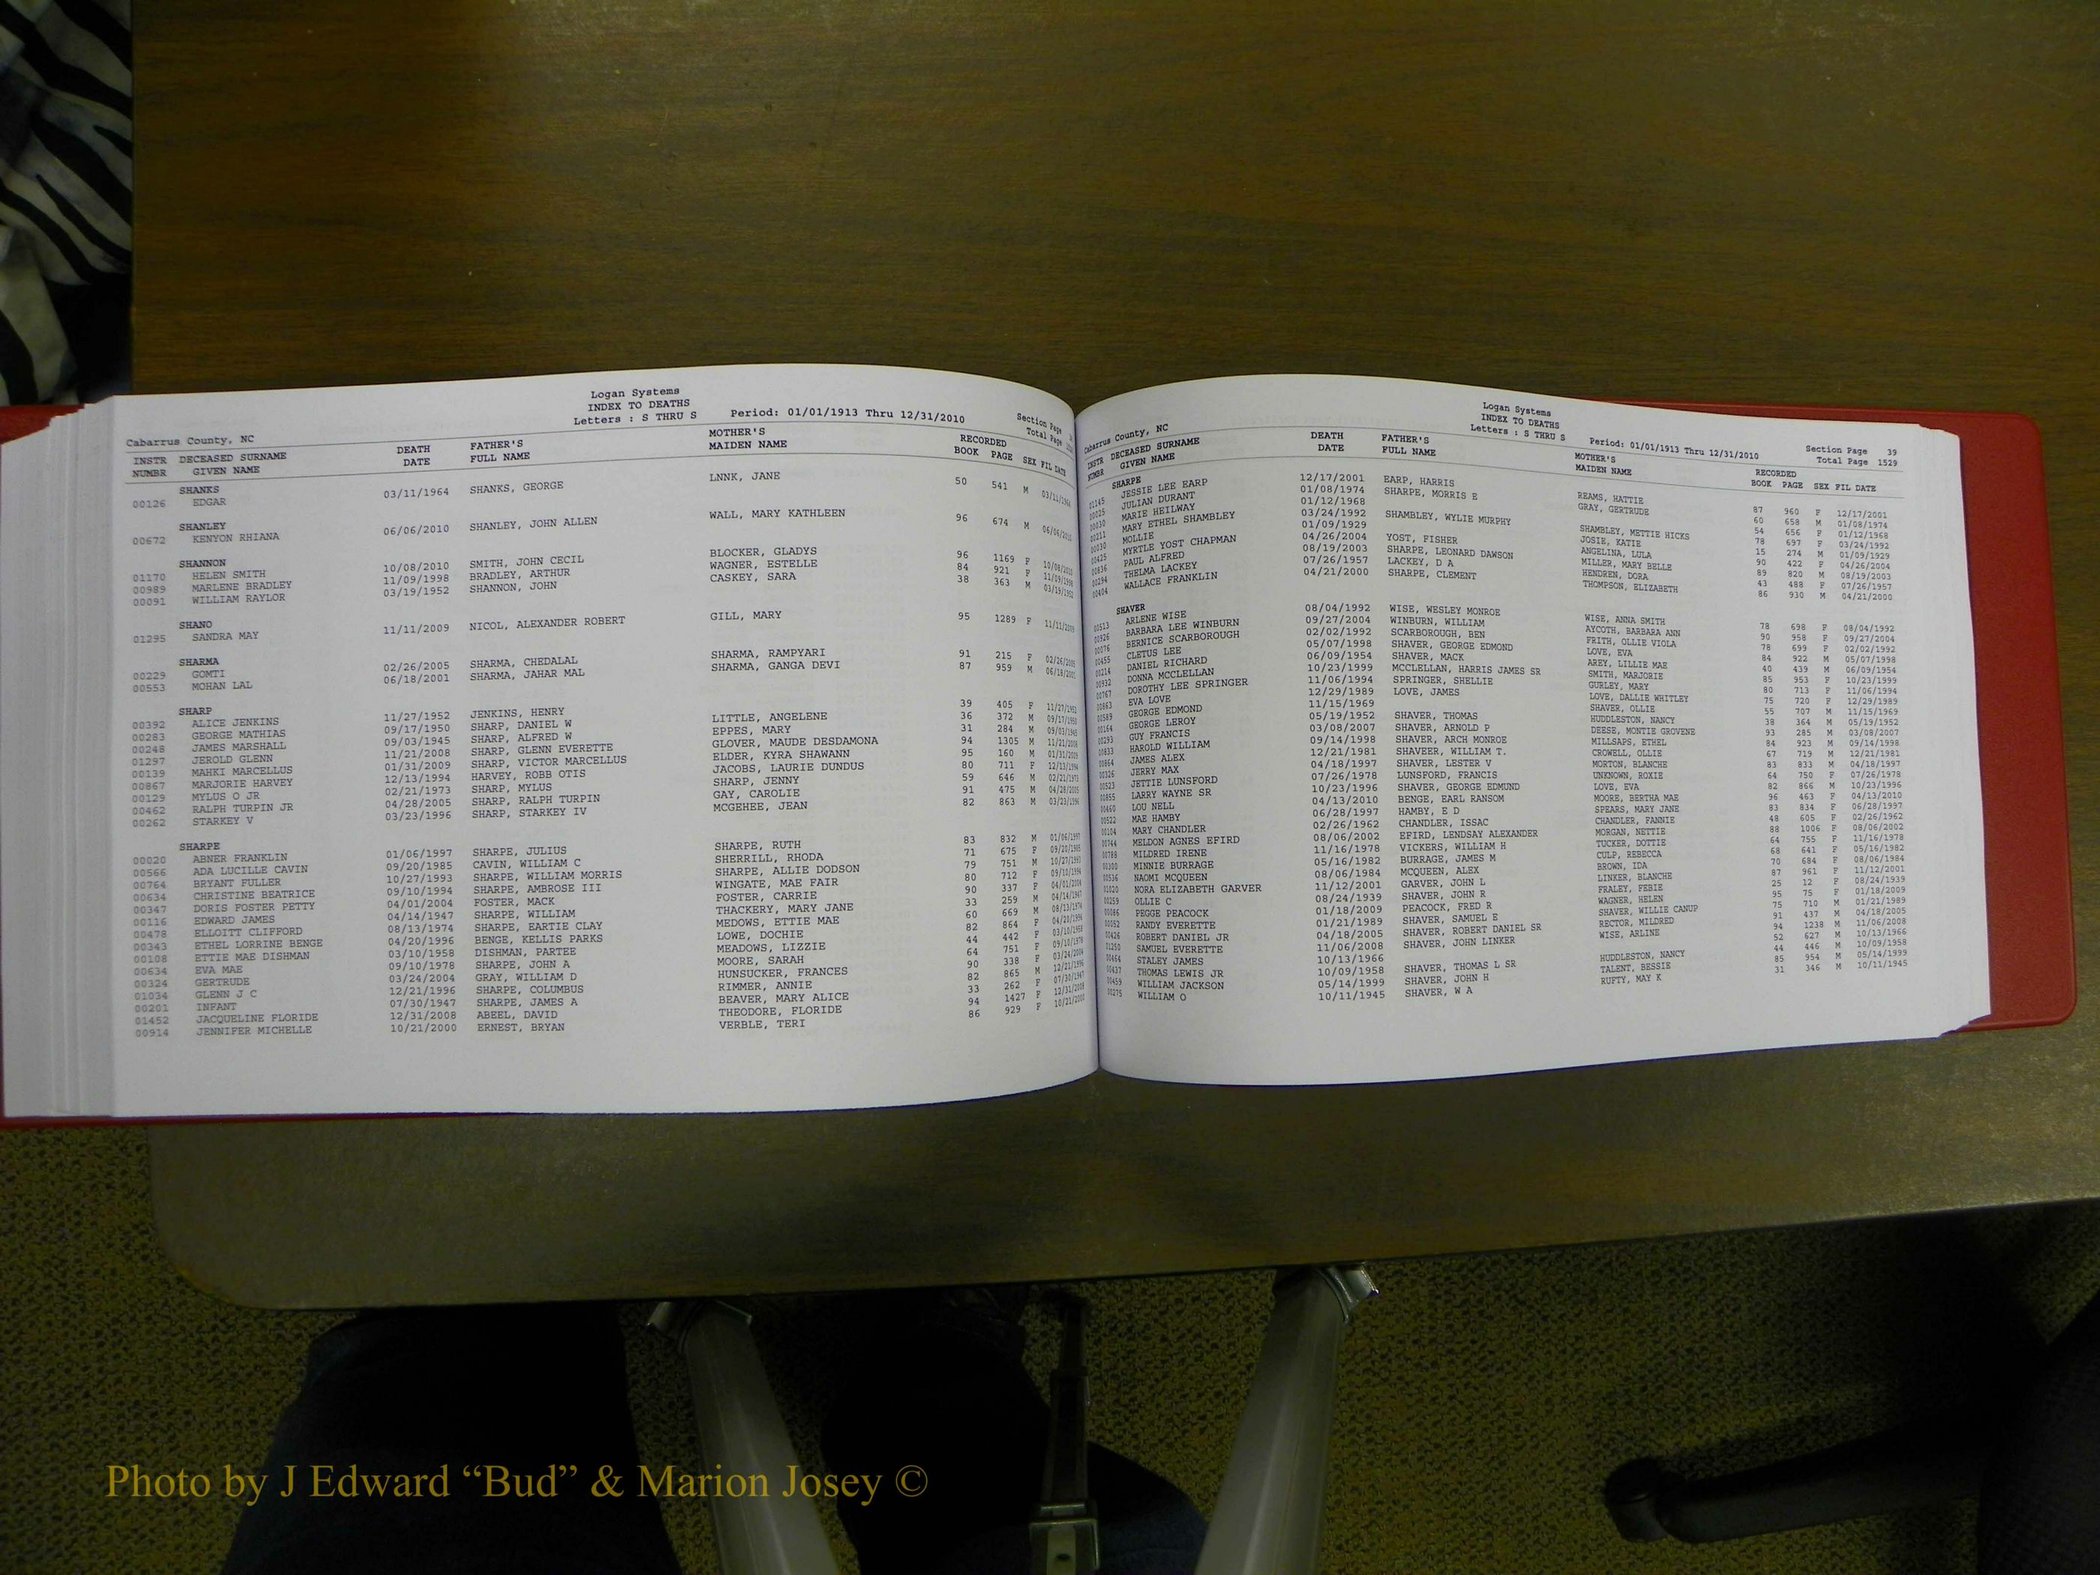 Logan Systems
INDEX TO DEATHS
Letters : S THRU S Period: 01/01/1913 Thru 12/31/2010
Cabarrus County, NC Section Page
Total Page
INSTR DECEASED SURNAME DEATH FATHER'S MOTHER'S RECORDED
NUMBR GIVEN NAME DATE FULL NAME MAIDEN NAME BOOK PAGE SEX FIL DATE
SHANKS
00126 EDGAR 03/11/1964 SHANKS, GEORGE LNNK, JANE 50 541 M 03/11/1964
SHANLEY
00672 KENYON RHIANA 06/06/2010 SHANLEY, JOHN ALLEN WALL, MARY KATHLEEN 96 674 M 06/06/2010
SHANNON
01170 HELEN SMITH 10/08/2010 SMITH, JOHN CECIL BLOCKER, GLADYS 96 1169 F 10/08/2010
00989 MARLENE BRADLEY 11/09/1998 BRADLEY, ARTHUR WAGNER, ESTELLE 84 921 F 11/09/1998
00091 WILLIAM RAYLOR 03/19/1952 SHANNON, JOHN CASKEY, SARA 38 363 M 03/19/1952
SHANO
01295 SANDRA MAY 11/11/2009 NICOL, ALEXANDER ROBERT GILL, MARY 95 1289 F 11/11/2009
SHARMA
00229 GOMTI 02/26/2005 SHARMA, CHEDALAL SHARMA, RAMPYARI 91 215 F 02/26/2005
00553 MOHAN LAL 06/18/2001 SHARMA, JAHAR MAL SHARMA, GANGA DEVI 87 959 M 06/18/2001
SHARP
00392 ALICE JENKINS 11/27/1952 JENKINS, HENRY 39 405 F 11/27/1952
00283 GEORGE MATHIAS 09/17/1950 SHARP, DANIEL W LITTLE, ANGELENE 36 372 M 09/17/1950
00248 JAMES MARSHALL 09/03/1945 SHARP, ALFRED W EPPES, MARY 31 284 M 09/03/1945
01297 JEROLD GLENN 11/21/2008 SHARP, GLENN EVERETTE GLOVER, MAUDE DESDAMONA 94 1305 M 11/21/2008
00139 MAHKI MARCELLUS 01/31/2009 SHARP, VICTOR MARCELLUS ELDER, KYRA SHAWANN 95 160 M 01/31/2009
00867 MARJORIE HARVEY 12/13/1994 HARVEY, ROBB OTIS JACOBS, LAURIE DUNDUS 80 711 F 12/13/1994
00129 MYLUS O JR 02/21/1973 SHARP, MYLUS SHARP, JENNY 59 646 M 02/21/1973
00462 RALPH TURPIN JR 04/28/2005 SHARP, RALPH TURPIN GAY, CAROLIE 91 475 M 04/28/2005
00262 STARKEY V 03/23/1996 SHARP, STARKEY IV MCGEHEE, JEAN 82 863 M 03/23/1996
SHARPE
00020 ABNER FRANKLIN 01/06/1997 SHARPE, JULIUS SHARPE, RUTH 83 832 M 01/06/1997
00566 ADA LUCILLE CAVIN 09/20/1985 CAVIN, WILLIAM C SHERRILL, RHODA 71 675 F 09/20/1985
00764 BRYANT FULLER 10/27/1993 SHARPE, WILLIAM MORRIS SHARPE, ALLIE DODSON 79 751 M 10/27/1993
00634 CHRISTINE BEATRICE 09/10/1994 SHARPE, AMBROSE III WINGATE, MAE FAIR 80 712 F 09/10/1994
00347 DORIS FOSTER PETTY 04/01/2004 FOSTER, MACK FOSTER, CARRIE 90 337 F 04/01/2004
00116 EDWARD JAMES 04/14/1947 SHARPE, WILLIAM THACKERY, MARY JANE 33 259 M 04/14/1947
00478 ELLOITT CLIFFORD 08/13/1974 SHARPE, EARTIE CLAY MEDOWS, ETTIE MAE 60 669 M 08/13/1974
00343 ETHEL LORRINE BENGE 04/20/1996 BENGE, KELLIS PARKS LOWE, DOCHIE 82 864 F 04/20/1996
00108 ETTIE MAE DISHMAN 03/10/1958 DISHMAN, PARTEE MEADOWS, LIZZIE 44 442 F 03/10/1958
00634 EVA MAE 09/10/1978 SHARPE, JOHN A MOORE, SARAH 64 751 F 09/10/1978
00324 GERTRUDE 03/24/2004 GRAY, WILLIAM D HUNSUCKER, FRANCES 90 338 F 03/24/2004
01034 GLENN J C 12/21/1996 SHARPE, COLUMBUS RIMMER, ANNIE 82 865 M 12/21/1996
00201 INFANT 07/30/1947 SHARPE, JAMES A BEAVER, MARY ALICE 33 262 F 07/30/1947
01452 JACQUELINE FLORIDE 12/31/2008 ABEEL, DAVID THEODORE, FLORIDE 94 1427 F 12/31/2008
00914 JENNIFER MICHELLE 10/21/2000 ERNEST, BRYAN VERBLE, TERI 86 929 F 10/21/2000
Logan Systems
INDEX TO DEATHS
Letters : S THRU S Period: 01/01/1913 Thru 12/31/2010
Cabarrus County, NC Section Page 39
Total Page 1529
INSTR DECEASED SURNAME DEATH FATHER'S MOTHER'S RECORDED
NUMBR GIVEN NAME DATE FULL NAME MAIDEN NAME BOOK PAGE SEX FIL DATE
SHARPE
01145 JESSIE LEE EARP 12/17/2001 EARP, HARRIS REAMS, HATTIE 87 960 F 12/17/2001
00025 JULIAN DURANT 01/08/1974 SHARPE, MORRIS E GRAY, GERTRUDE 60 658 M 01/08/1974
00030 MARIE HEILWAY 01/12/1968 54 656 F 01/12/1968
00211 MARY ETHEL SHAMBLEY 03/24/1992 SHAMBLEY, WYLIE MURPHY SHAMBLEY, METTIE HICKS 78 697 F 03/24/1992
00030 MOLLIE 01/09/1929 JOSIE, KATIE 15 274 M 01/09/1929
00425 MYRTLE YOST CHAPMAN 04/26/2004 YOST, FISHER ANGELINA, LULA 90 422 F 04/26/2004
00836 PAUL ALFRED 08/19/2003 SHARPE, LEONARD DAWSON MILLER, MARY BELLE 89 820 M 08/19/2003
00294 THELMA LACKEY 07/26/1957 LACKEY, D A HENDREN, DORA 43 488 F 07/26/1957
00404 WALLACE FRANKLIN 04/21/2000 SHARPE, CLEMENT THOMPSON, ELIZABETH 86 930 M 04/21/2000
SHAVER
00513 ARLENE WISE 08/04/1992 WISE, WESLEY MONROE WISE, ANNA SMITH 78 698 F 08/04/1992
00926 BARBARA LEE WINBURN 09/27/2004 WINBURN, WILLIAM AYCOTH, BARBARA ANN 90 958 F 09/27/2004
00076 BERNICE SCARBOROUGH 02/02/1992 SCARBOROUGH, BEN FRITH, OLLIE VIOLA 78 699 F 02/02/1992
00455 CLETUS LEE 05/07/1998 SHAVER, GEORGE EDMOND LOVE, EVA 84 922 M 05/07/1998
00214 DANIEL RICHARD 06/09/1954 SHAVER, MACK AREY, LILLIE MAE 40 439 M 06/09/1954
00932 DONNA MCCLELLAN 10/23/1999 MCCLELLAN, HARRIS JAMES SR SMITH, MARJORIE 85 953 F 10/23/1999
00767 DOROTHY LEE SPRINGER 11/06/1994 SPRINGER, SHELLIE GURLEY, MARY 80 713 F 11/06/1994
00863 EVA LOVE 12/29/1989 LOVE, JAMES LOVE, DALLIE WHITLEY 75 720 F 12/29/1989
00589 GEORGE EDMOND 11/15/1969 SHAVER, OLLIE 55 707 M 11/15/1969
00164 GEORGE LEROY 05/19/1952 SHAVER, THOMAS HUDDLESTON, NANCY 38 364 M 05/19/1952
00293 GUY FRANCIS 03/08/2007 SHAVER, ARNOLD P DEESE, MONTIE GROVENE 93 285 M 03/08/2007
00833 HAROLD WILLIAM 09/14/1998 SHAVER, ARCH MONROE MILLSAPS, ETHEL 84 923 M 09/14/1998
00864 JAMES ALEX 12/21/1981 SHAVEER, WILLIAM T. CROWELL, OLLIE 67 719 M 12/21/1981
00326 JERRY MAX 04/18/1997 SHAVER, LESTER V MORTON, BLANCHE 83 833 M 04/18/1997
00523 JETTIE LUNSFORD 07/26/1978 LUNSFORD, FRANCIS UNKNOWN, ROXIE 64 750 F 07/26/1978
00855 LARRY WAYNE SR 10/23/1996 SHAVER, GEORGE EDMUND LOVE, EVA 82 866 M 10/23/1996
00460 LOU NELL 04/13/2010 BENGE, EARL RANSOM MOORE, BERTHA MAE 96 463 F 04/13/2010
00522 MAE HAMBY 06/28/1997 HAMBY, E D SPEARS, MARY JANE 83 834 F 06/28/1997
00104 MARY CHANDLER 02/26/1962 CHANDLER, ISSAC CHANDLER, FANNIE 48 605 F 02/26/1962
00744 MELDON AGNES EFIRD 08/06/2002 EFIRD, LENDSAY ALEXANDER MORGAN, NETTIE 88 1006 F 08/06/2002
00788 MILDRED IRENE 11/16/1978 VICKERS, WILLIAM H TUCKER, DOTTIE 64 755 F 11/16/1978
00300 MINNIE BURRAGE 05/16/1982 BURRAGE, JAMES M CULP, REBECCA 68 641 F 05/16/1982
00536 NAOMI MCQUEEN 08/06/1984 MCQUEEN, ALEX BROWN, IDA 70 684 F 08/06/1984
01020 NORA ELIZABETH GARVER 11/12/2001 GARVER, JOHN L LINKER, BLANCHE 87 961 F 11/12/2001
00259 OLLIE C 08/24/1939 SHAVER, JOHN R FRALEY, FEBIE 25 12 F 08/24/1939
00086 PEGGE PEACOCK 01/18/2009 PEACOCK, FRED R WAGNER, HELEN 95 75 F 01/18/2009
00052 RANDY EVERETTE 01/21/1989 SHAVER, SAMUEL E SHAVER, WILLIE CANUP 75 710 M 01/21/1989
00426 ROBERT DANIEL JR 04/18/2005 SHAVER, ROBERT DANIEL SR RECTOR, MILDRED 91 437 M 04/18/2005
01250 SAMUEL EVERETTE 11/06/2008 SHAVER, JOHN LINKER WISE, ARLINE 94 1238 M 11/06/2008
00464 STALEY JAMES 10/13/1966 52 627 M 10/13/1966
00437 THOMAS LEWIS JR 10/09/1958 SHAVER, THOMAS L SR HUDDLESTON, NANCY 44 446 M 10/09/1958
00459 WILLIAM JACKSON 05/14/1999 SHAVER, JOHN H TALENT, BESSIE 85 954 M 05/14/1999
00275 WILLIAM O 10/11/1945 SHAVER, W A RUFTY, MAY K 31 346 M 10/11/1945
Photo by J Edward “Bud” & Marion Josey ©